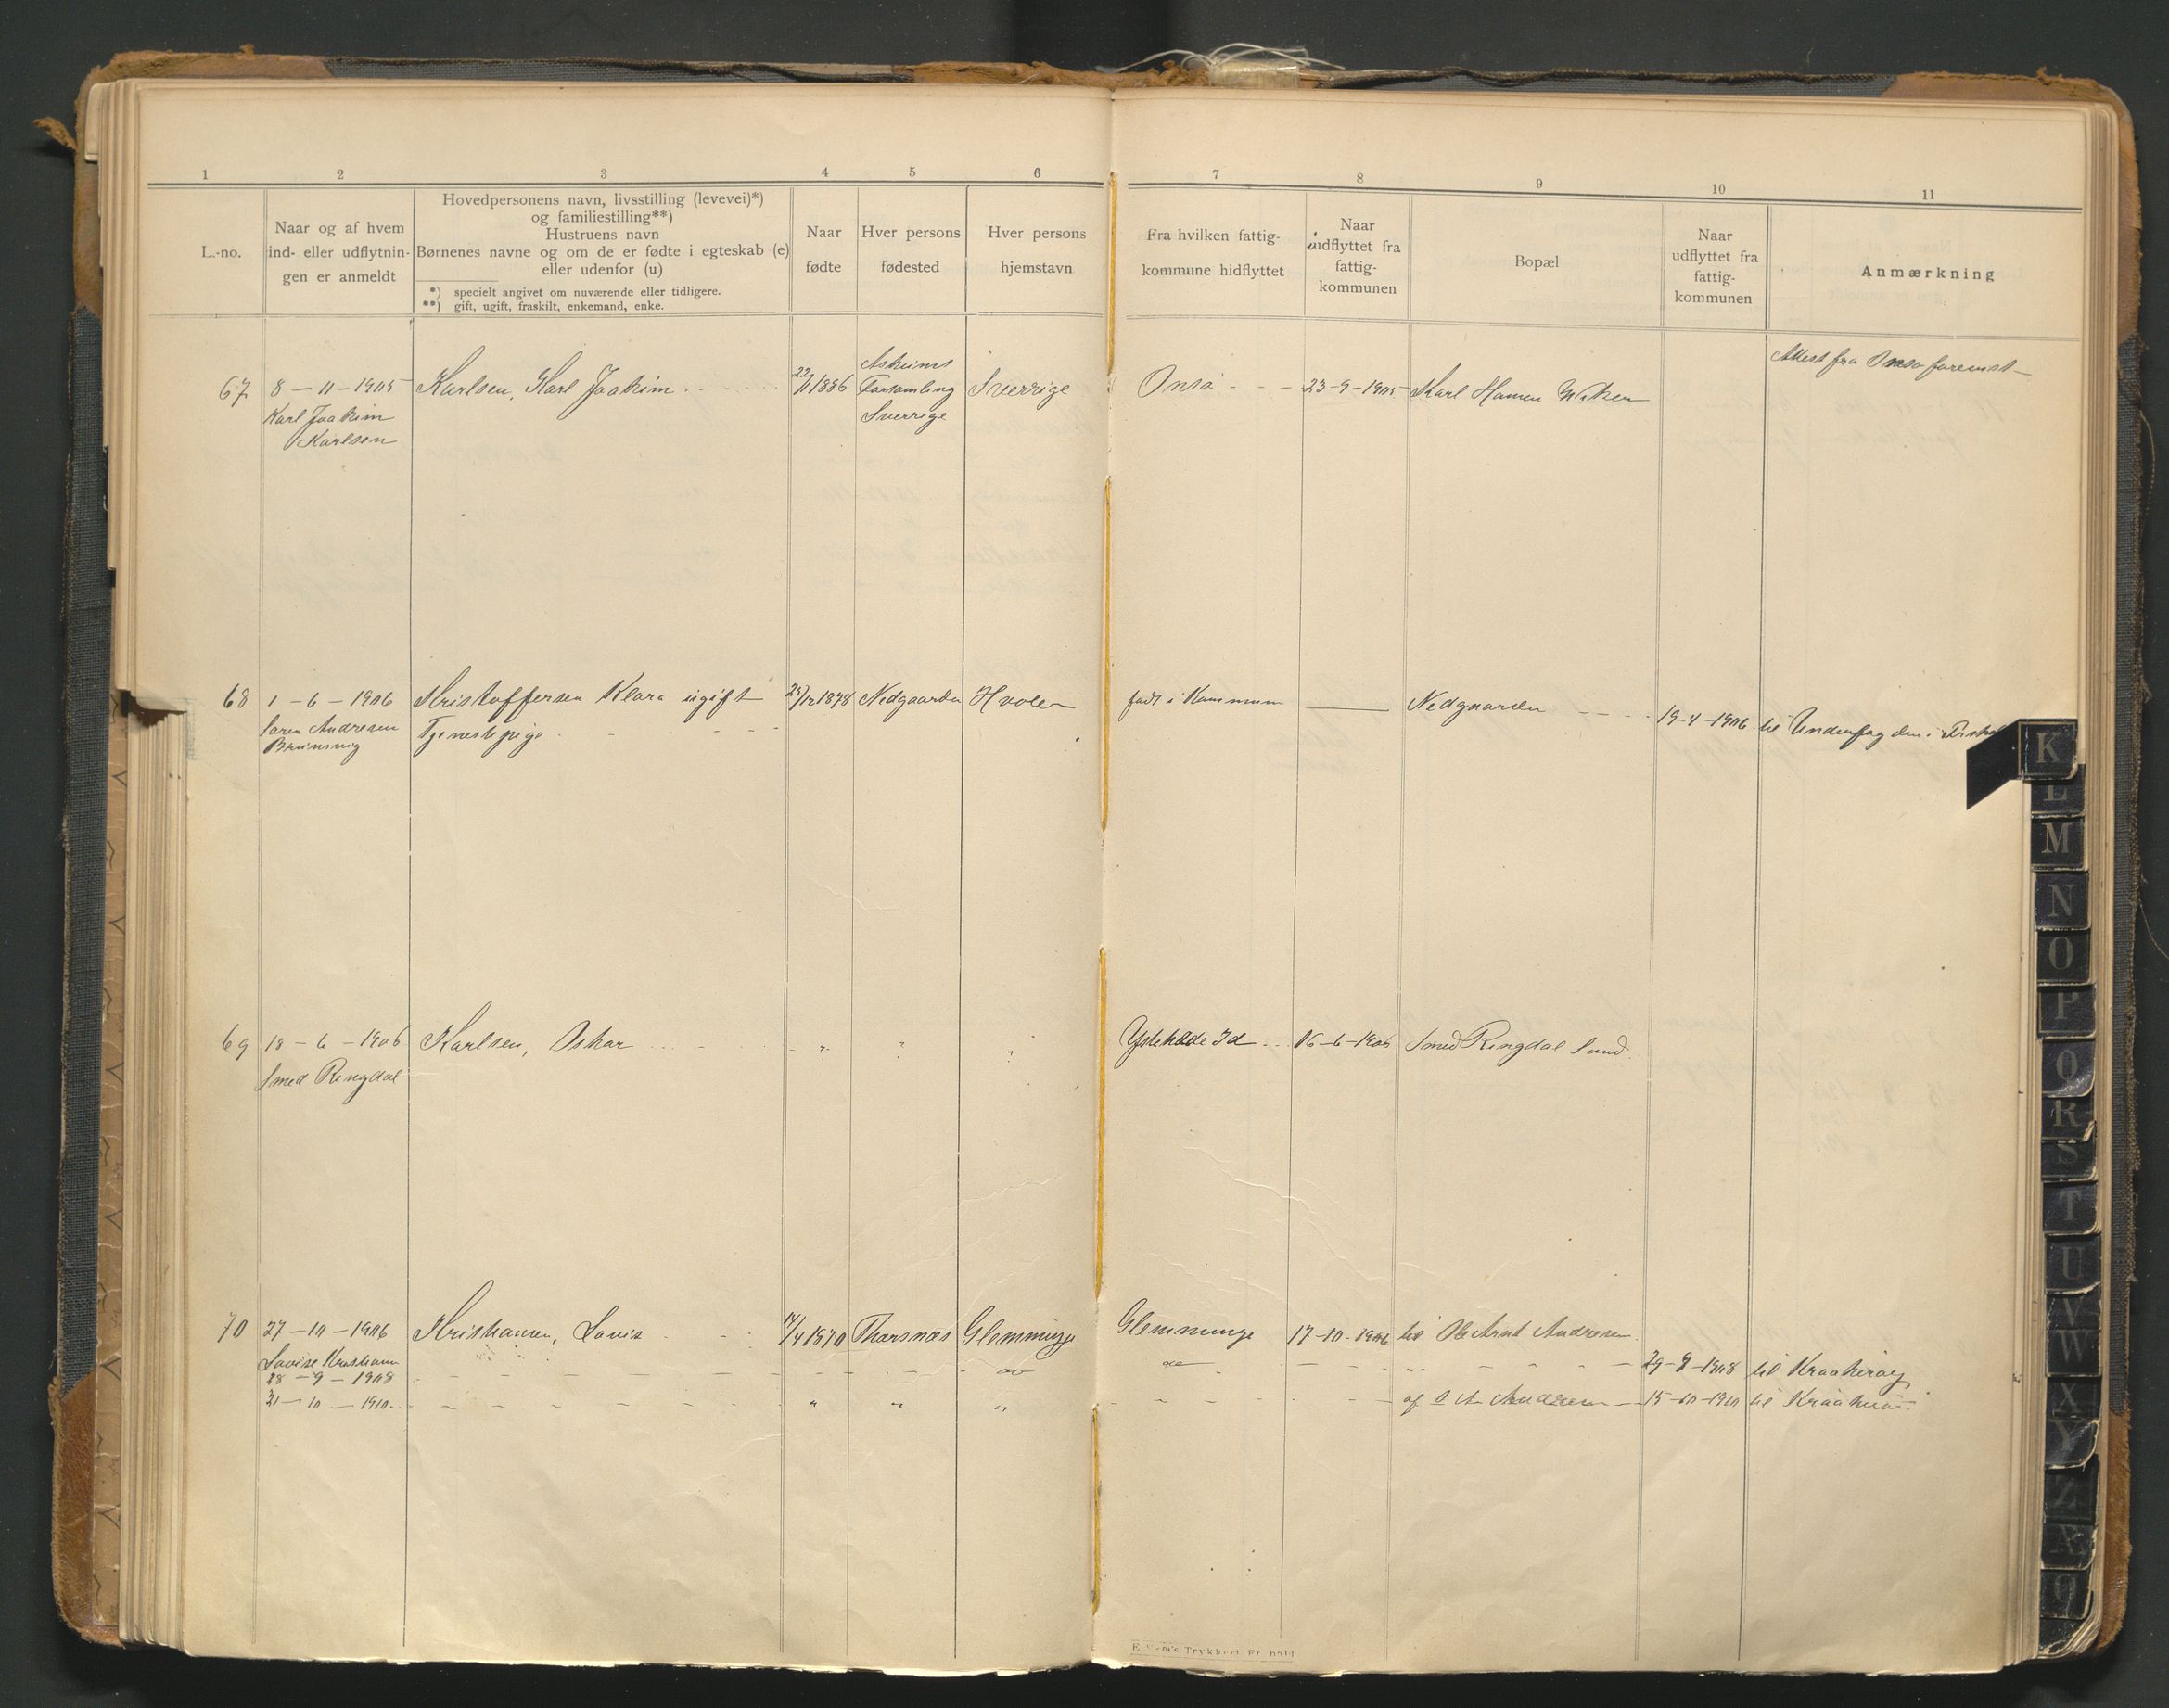 1 2 3 4 5 6 7 8 9 10 11
L.-no.
Naar og af hvem
ind- eller udflytnin-
gen er anmeldt
Hovedpersonens navn, livsstilling (levevei)*)
og familiestilling**)
Hustruens navn
Børnenes navne og om de er fødte i egteskab (e)
eller udenfor (u)
*) specielt angivet om nuværende eller tidligere.
**) gift, ugift, fraskilt, enkemand, enke.
Naar
fødte
Hver persons
fødested
Hver persons
hjemstavn
Fra hvilken fattig-
kommune hidflyttet
Naar
indflyttet fra
fattig-
kommunen
Bopæl
Naar
udflyttet fra
fattig-
kommunen
Anmærkning
Askums Attest fra Onsø forevist
67 8-11-1905 Karlsen, Karl Joakim 22/1 1886 Forsamling Sverrige Onsø 23-9-1905 Karl Hansen
Karl Joakim Sverrige
Karlsen
68 1-6-1906 Kristoffersen Klara ugift 25/12 1878 Nedgaarden Hvaler født i Kommunen Nedgaarden 19-4-1906 til
Søren Andresen Tjenestepige
Brunsvig
69 18-6-1906 Karlsen, Oskar " " " Id 16-6-1906 Smed Ringdal Sand
Smed Ringdal
70 27-10-1906 Kristiansen, Lovis 14/4 1870 Thorsnæs Glemminge Glemminge 17-10-1906 til Ole Arnt Andresen
Lovise Kristiansen do do 29-9-1908 til Kraakerøy
28-9-1908
31-10-1910 " " " af O A Andresen 15-10-1910 til Kraakerø
K
L
M
N
O
P
Q
R
S
T
U
V
W
X
Y
Z
Æ
Ø